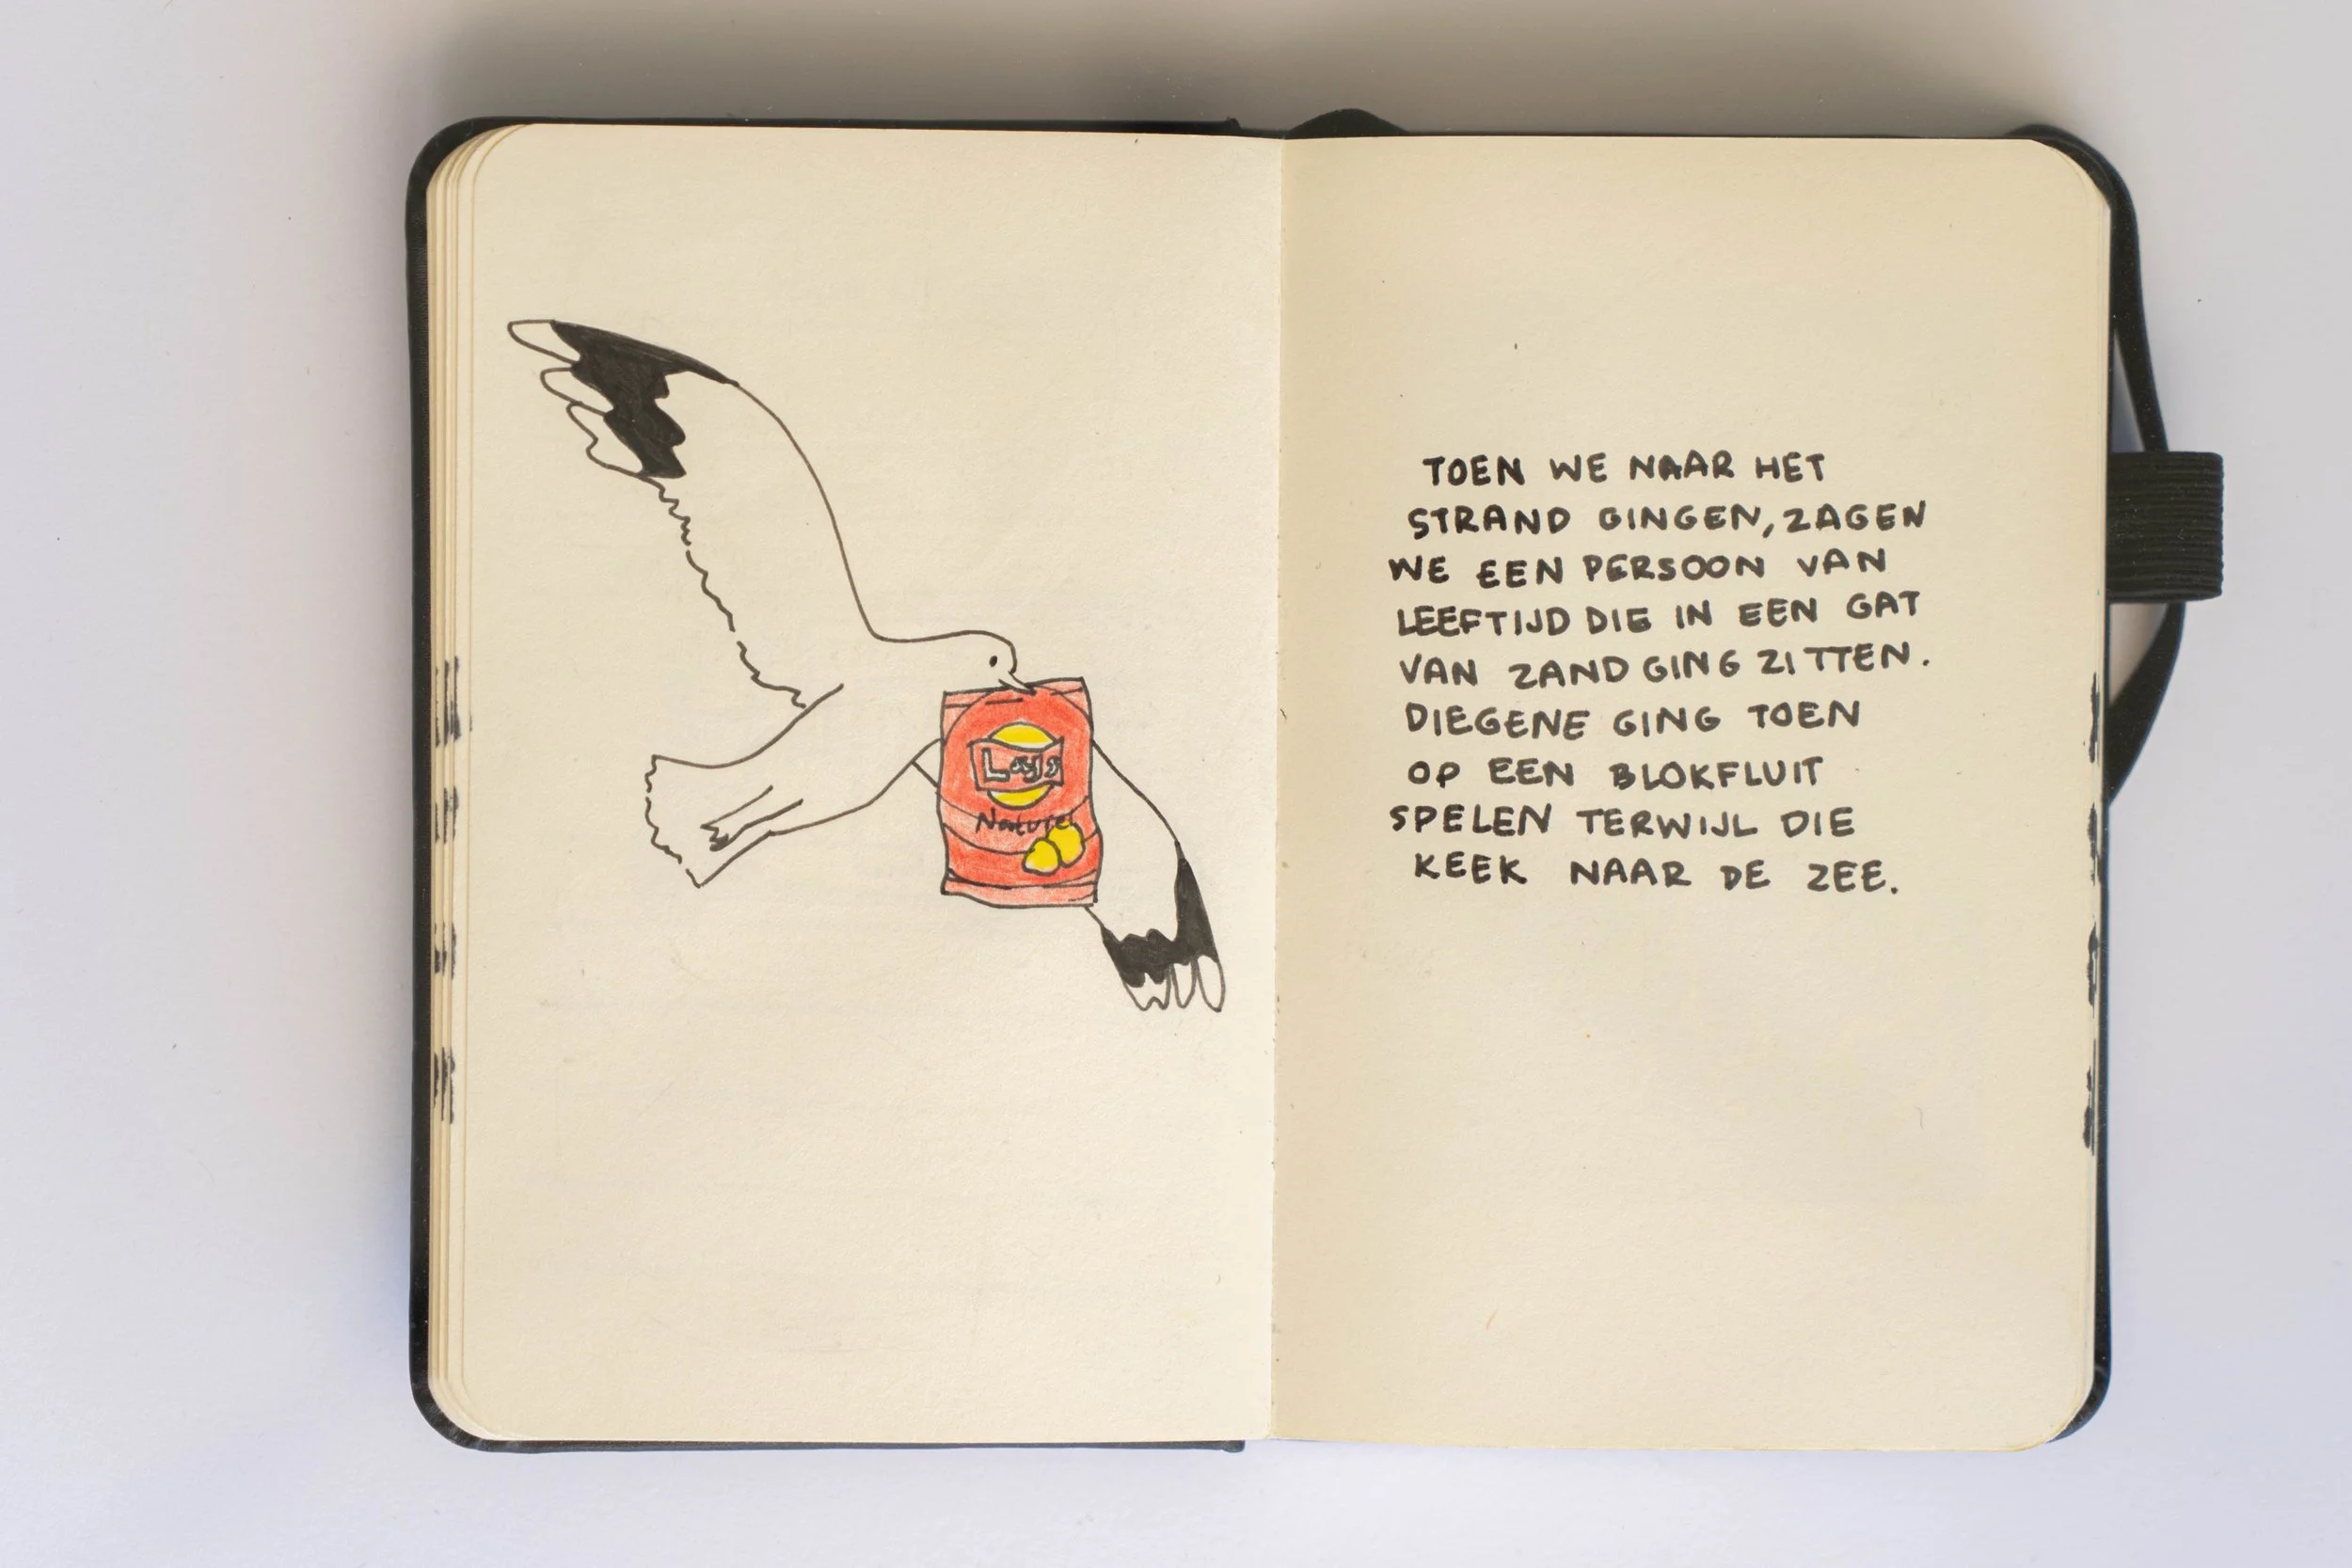 Lays
Naturel
TOEN WE NAAR HET
STRAND GINGEN, ZAGEN
WE EEN PERSOON VAN
LEEFTIJD DIE IN EEN GAT
VAN ZAND GING ZITTEN.
DIEGENE GING TOEN
OP EEN BLOKFLUIT
SPELEN TERWIJL DIE
KEEK NAAR DE ZEE.